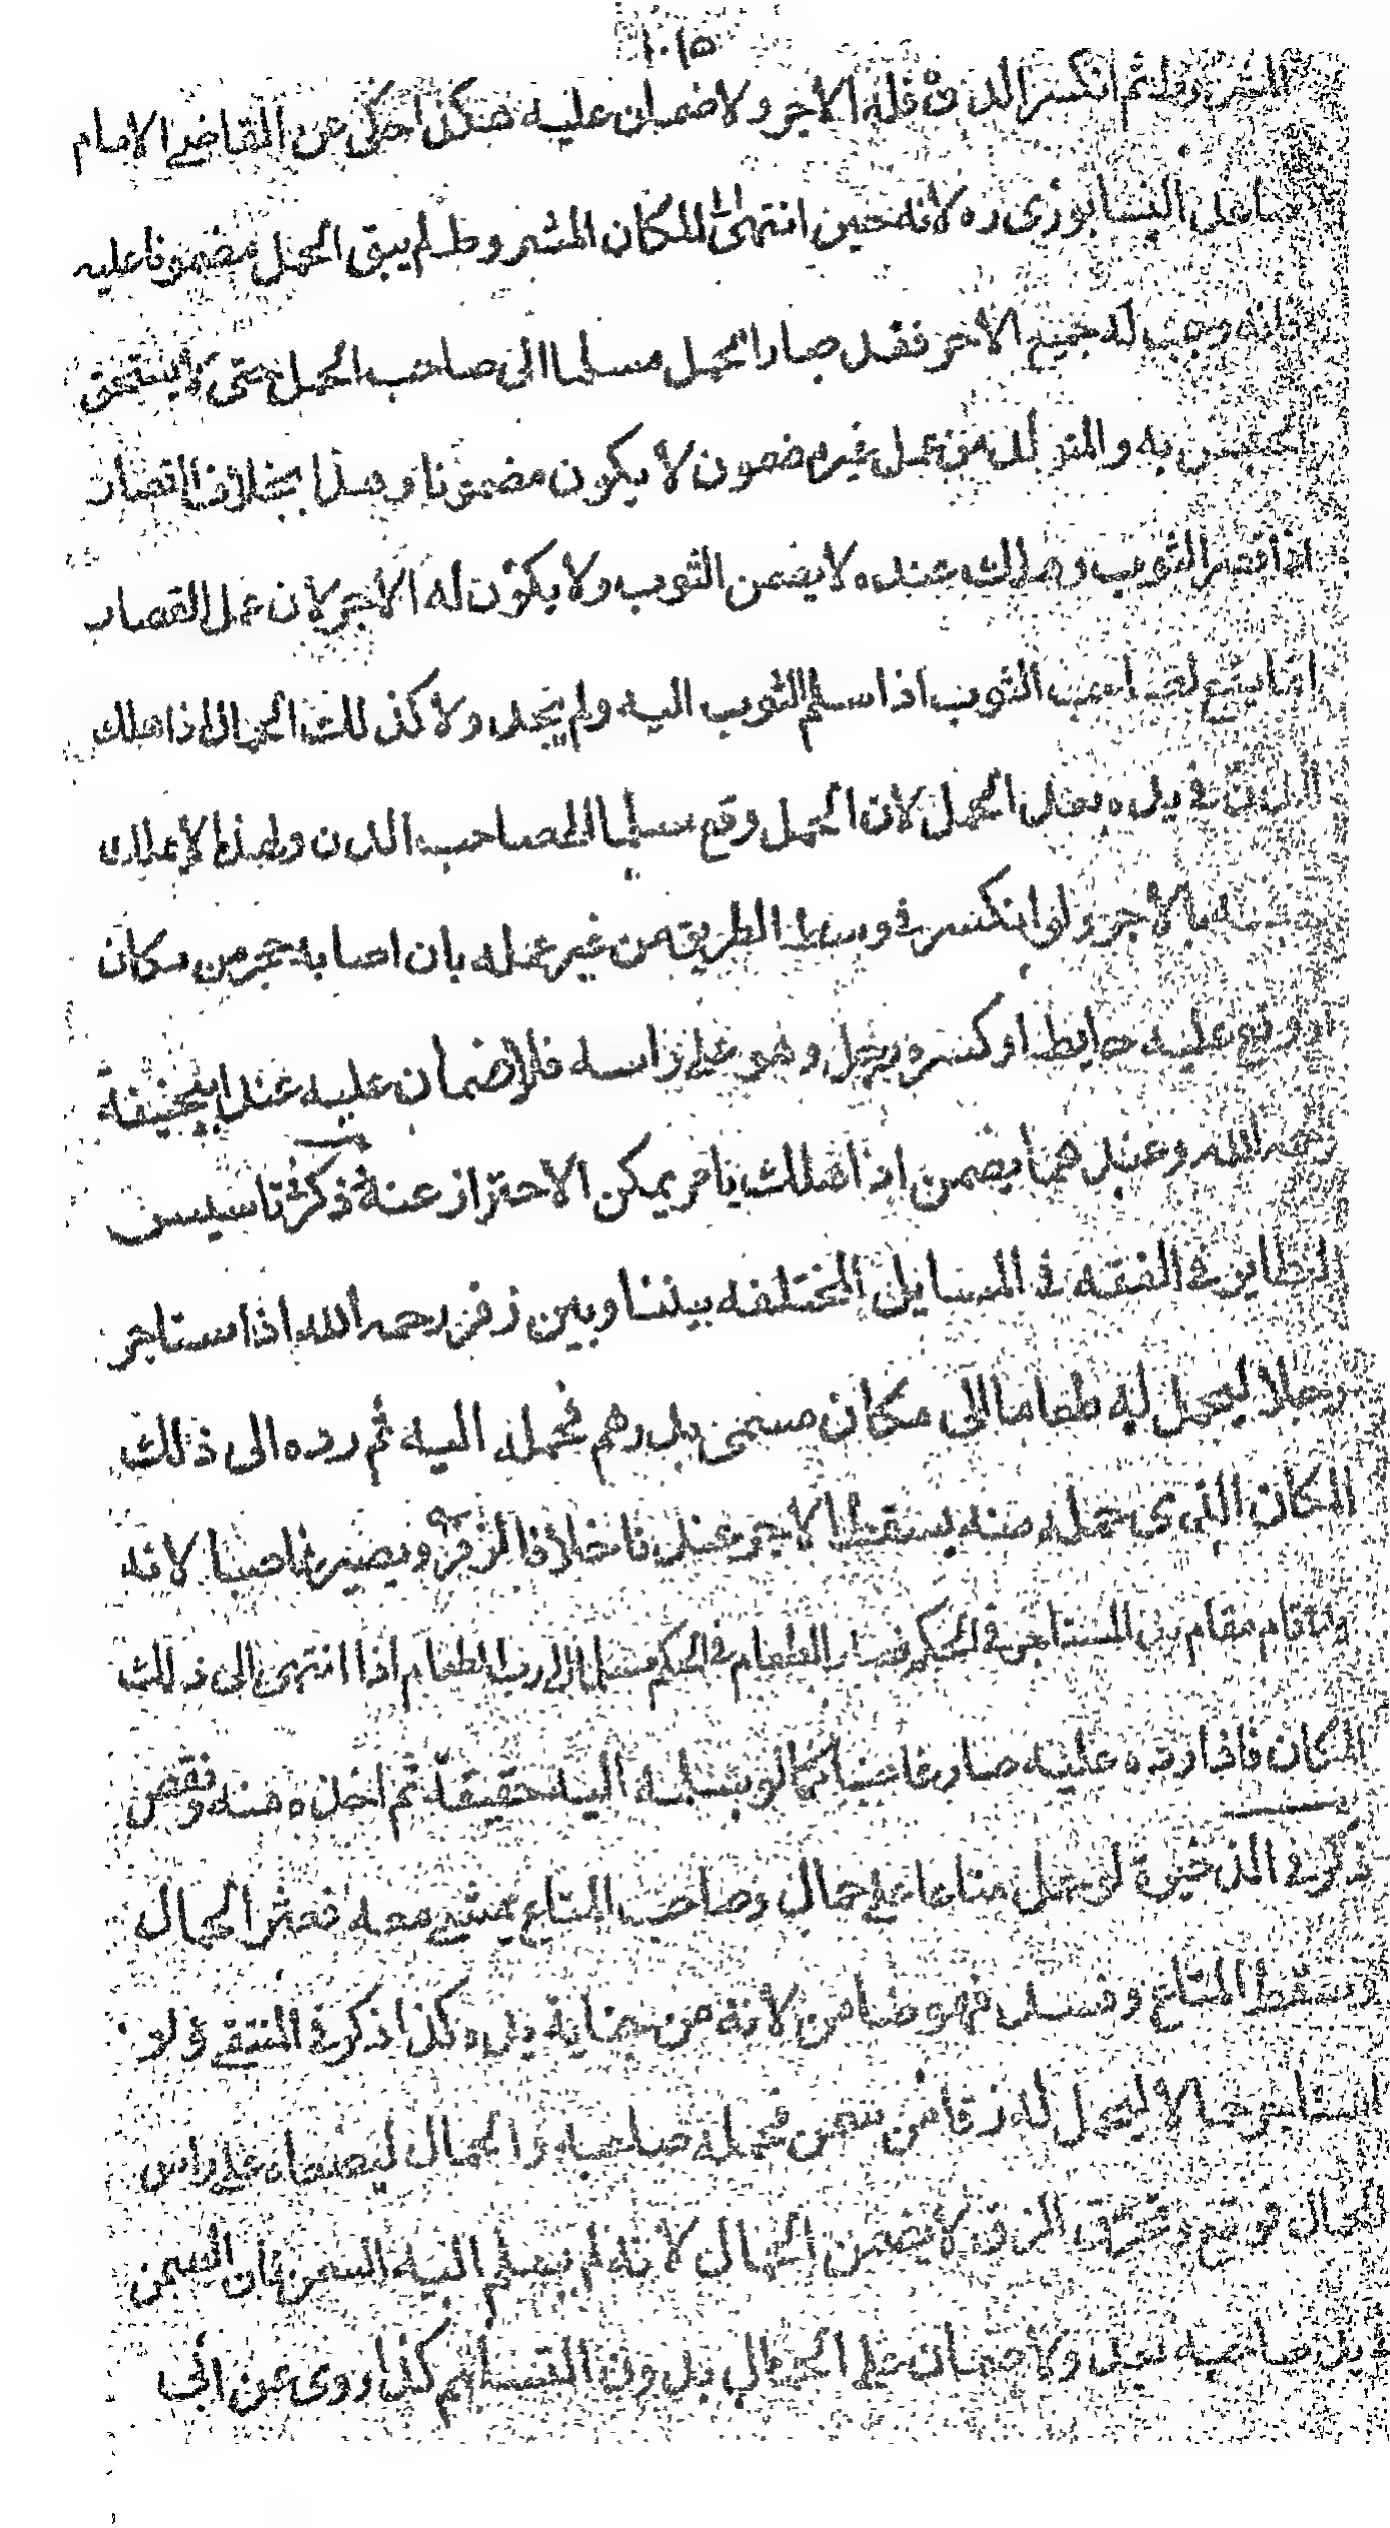 ١٠١٥
المشروط ثم انكسر الدن فله الاجر ولا ضمان عليه هكذا حكى عن القاضي الامام
صاعد النيسابورى ره لانه حين انتهى الى المكان المشروط لم يبق الحمل مضمونا عليه
فانه وجب له جميع الاجر فقد صار الحمل مسلما الى صاحب الحمل حتى لا يستحق
الحبس به والمتولد من عمل غير مضمون لا يكون مضمونا وهذا بخلاف القصار
اذا قصر الثوب وهلك عنده لا يضمن الثوب ولا يكون له الاجر لان عمل القصار
انما يقع لصاحب الثوب اذا سلم الثوب اليه ولم يوجد ولا كذلك الحمال اذا هلك
الدن في يده بعد الحمل لان الحمل وقع مسلما الى صاحب الدن ولهذا لا يملك
حبسه بالاجر ولو انكسر في وسط الطريق من غير عمله بان اصابه حجر من مكان
او وقع عليه حايط او كسره رجل وهو على راسه فلا ضمان عليه عند ابيحنيفة
رحمه الله وعندهما يضمن اذا هلك بامر يمكن الاحتراز عنه ذكر في تاسيس
النظاير في الفقه في المسايل المختلفه بيننا وبين زفر رحمه الله اذا استاجر
رجلا ليحمل له طعاما الى مكان مسمى بدرهم فحمله اليه ثم رده الى ذلك
المكان الذى حمله منه يسقط الاجر عندنا خلافا لزفر ويصير غاصبا لانه
قام مقام المستاجر في الحكم فصار الطعام في الحكم مسلما الى رب الطعام اذا انتهى الى ذلك
المكان فاذا رده عليه صار غاصبا كما لو سلمه اليه حقيقة ثم اخذه منه ونقص
ذكر في الذخيرة لو حمل متاعا على حمال وصاحب المتاع يمشي معه فعثر الحمال
وسقط المتاع وفسد فهو ضامن لانه من جناية يده كذا ذكر في المنتقى ولو
استاجر حمالا ليحمل له زقا من سمن فحمله صاحبه والحمال ليضعاه على راس
الحمال فوقع وتخرق الزق لا يضمن الحمال لانه لم يسلم اليه السمن فان السمن
في يد صاحبه بعد ولا ضمان على الحمال بدون التسليم كذا روى عن ابى